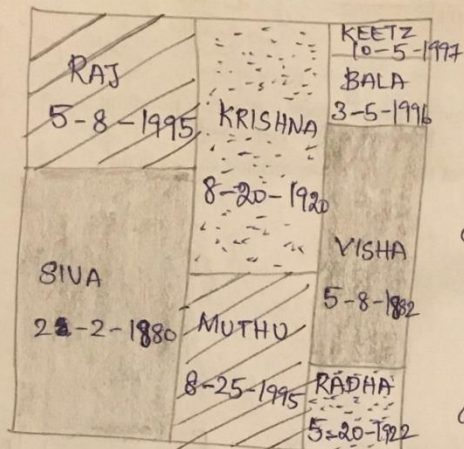 RAJ
5-8-1995
SIVA
-2-1880
KRISHNA
8-20-1920
MUTHU
8-25-1995
KEETZ
10-5-1997
BALA
3-5-1996
VISHA
5-8-1882
RADHA
5-20-1922